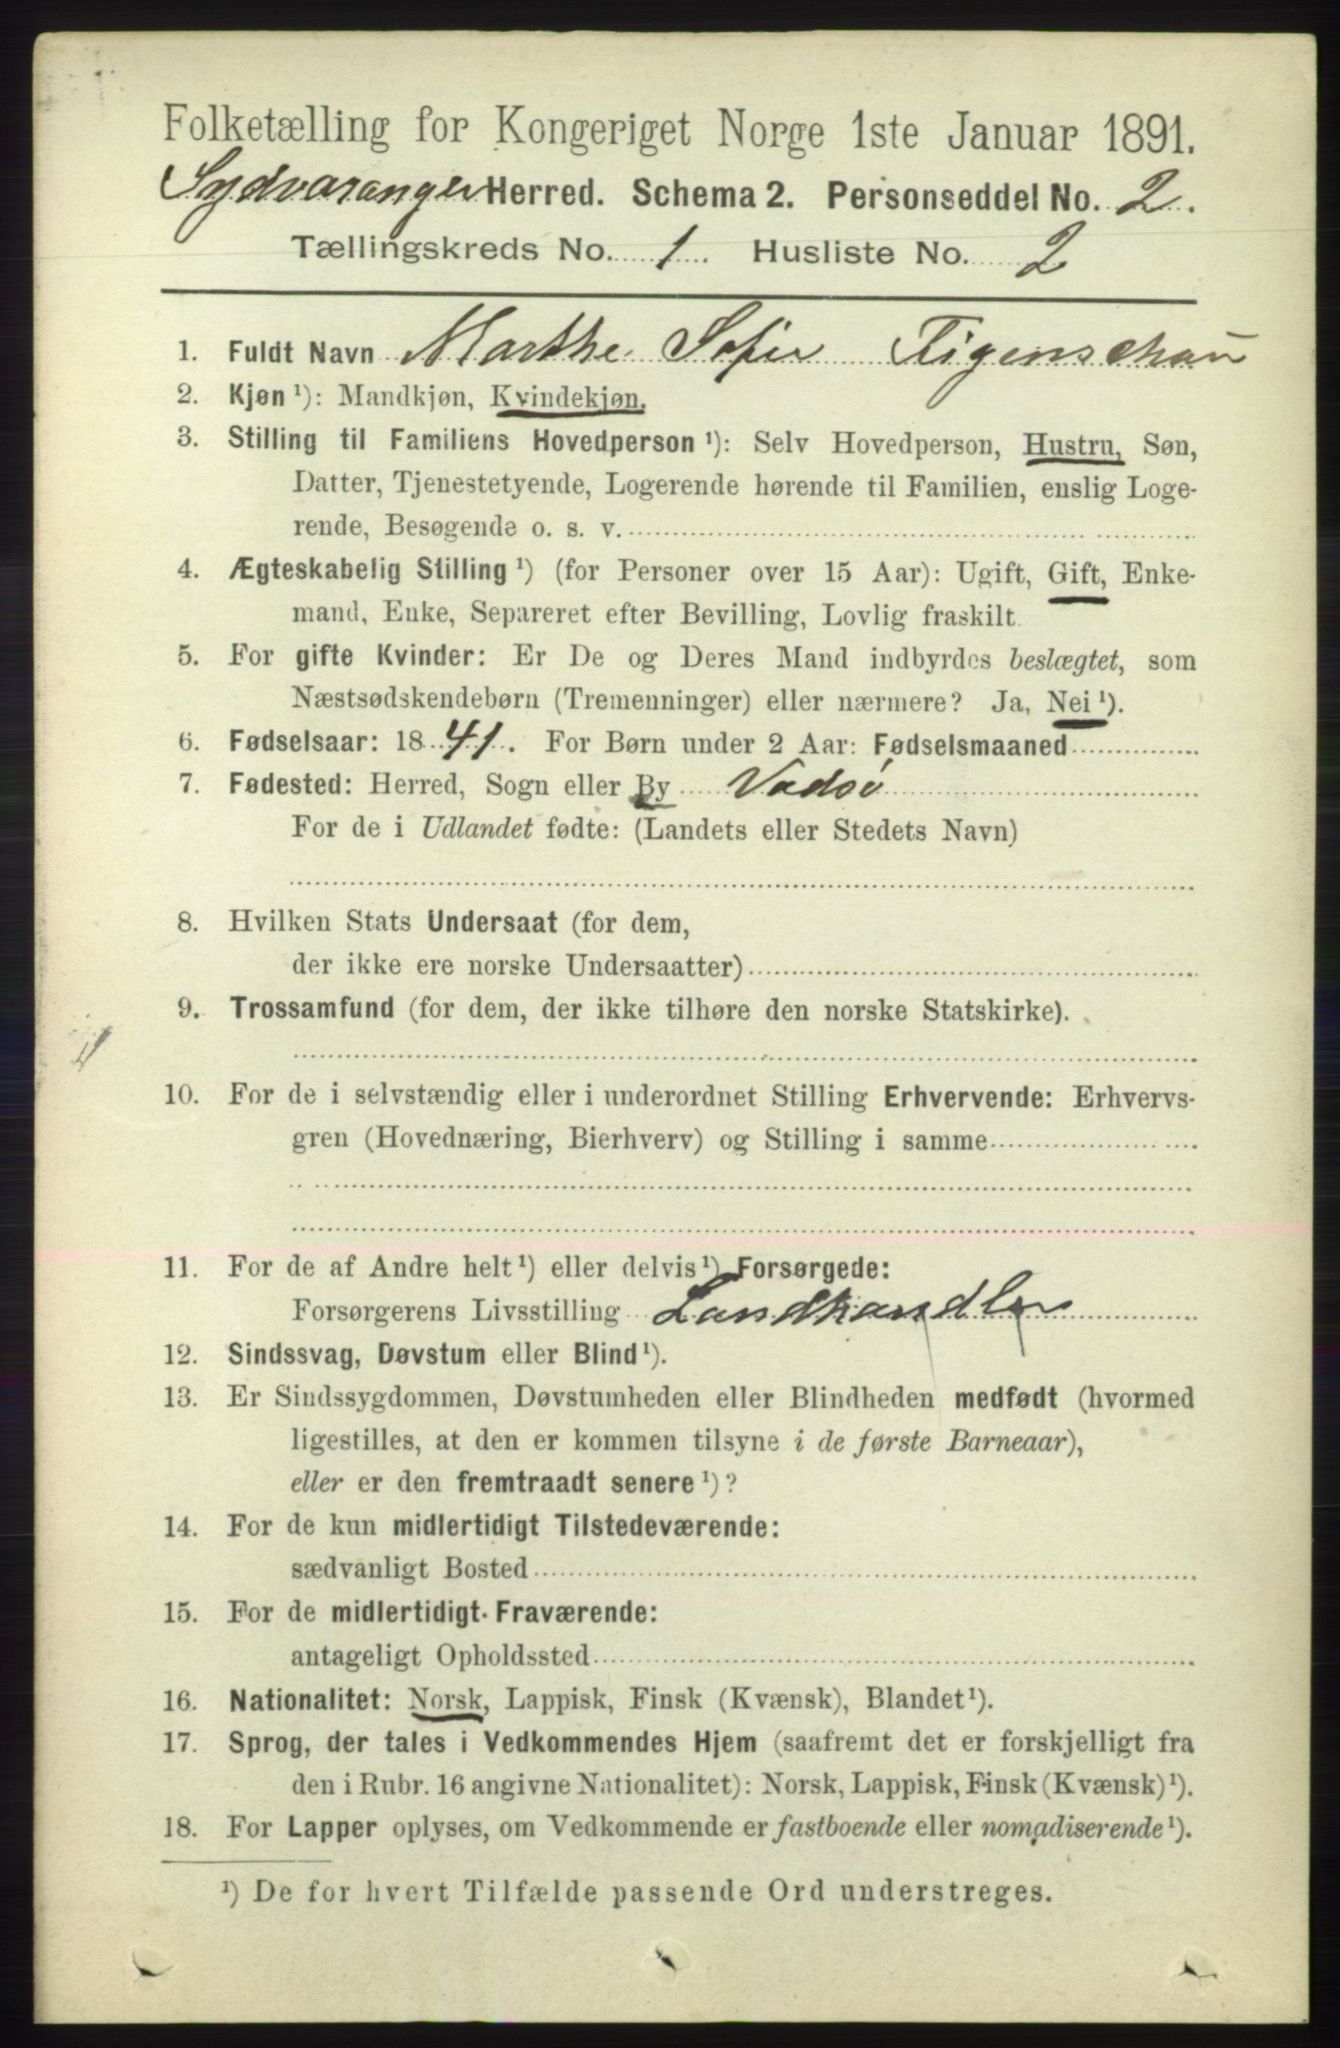 Folketælling for Kongeriget Norge 1ste Januar 1891.
Sydvaranger Herred. Schema 2. Personseddel No. 2.
Tællingskreds No. 1. Husliste No. 2
1. Fuldt Navn Marthe Sofie Figenschau
2. Kjøn ¹): Mandkjøn, Kvindekjøn.
3. Stilling til Familiens Hovedperson ¹): Selv Hovedperson, Hustru, Søn,
Datter, Tjenestetyende, Logerende hørende til Familien, enslig Loge-
rende, Besøgende o. s. v.
4. Ægteskabelig Stilling ¹) (for Personer over 15 Aar): Ugift, Gift, Enke-
mand, Enke, Separeret efter Bevilling, Lovlig fraskilt.
5. For gifte Kvinder: Er De og Deres Mand indbyrdes beslægtet, som
Næstsødskendebørn (Tremenninger) eller nærmere? Ja, Nei ¹).
6. Fødselsaar: 1841. For Børn under 2 Aar: Fødselsmaaned
7. Fødested: Herred, Sogn eller By Vadsø
For de i Udlandet fødte: (Landets eller Stedets Navn)
8. Hvilken Stats Undersaat (for dem,
der ikke ere norske Undersaatter)
9. Trossamfund (for dem, der ikke tilhøre den norske Statskirke).
10. For de i selvstændig eller i underordnet Stilling Erhvervende: Erhvervs-
gren (Hovednæring, Bierhverv) og Stilling i samme
11. For de af Andre helt ¹) eller delvis ¹) Forsørgede:
Forsørgerens Livsstilling Landhandler
12. Sindssvag, Døvstum eller Blind ¹).
13. Er Sindssygdommen, Døvstumheden eller Blindheden medfødt (hvormed
ligestilles, at den er kommen tilsyne i de første Barneaar),
eller er den fremtraadt senere ¹)?
14. For de kun midlertidigt Tilstedeværende:
sædvanligt Bosted
15. For de midlertidigt Fraværende:
antageligt Opholdssted
16. Nationalitet: Norsk, Lappisk, Finsk (Kvænsk), Blandet ¹).
17. Sprog, der tales i Vedkommendes Hjem (saafremt det er forskjelligt fra
den i Rubr. 16 angivne Nationalitet): Norsk, Lappisk, Finsk (Kvænsk) ¹).
18. For Lapper oplyses, om Vedkommende er fastboende eller nomadiserende ¹).
¹) De for hvert Tilfælde passende Ord understreges.